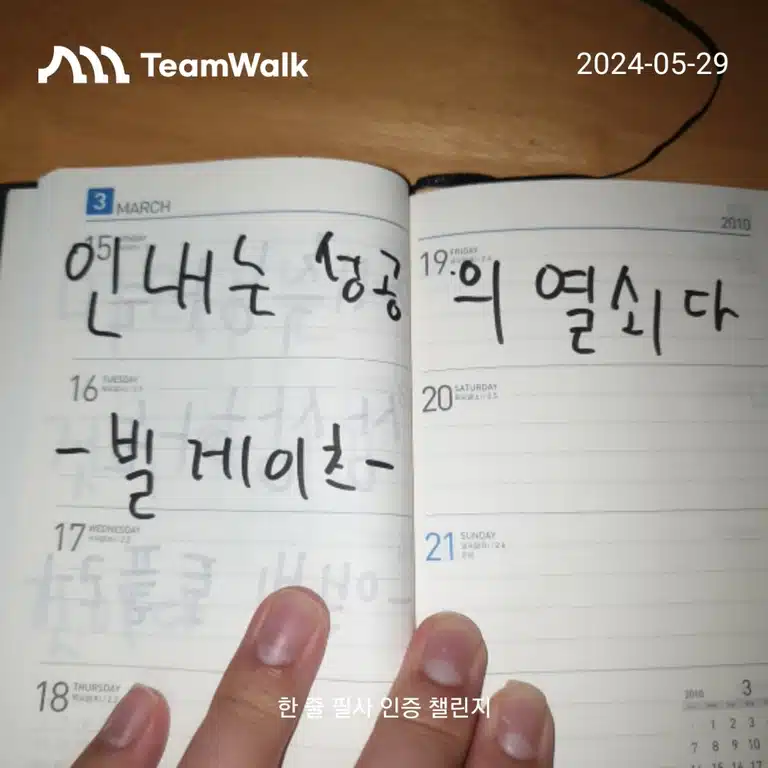 TeamWalk
2024-05-29
3 MARCH
15
인내는 성공의 열쇠다
16 TUESDAY
-빌 게이츠-
17 WEDNESDAY
18 THURSDAY
2010
19 FRIDAY
20 SATURDAY
21 SUNDAY
2010 3
1 2 3
7 8 9 10
한 줄 필사 인증 챌린지